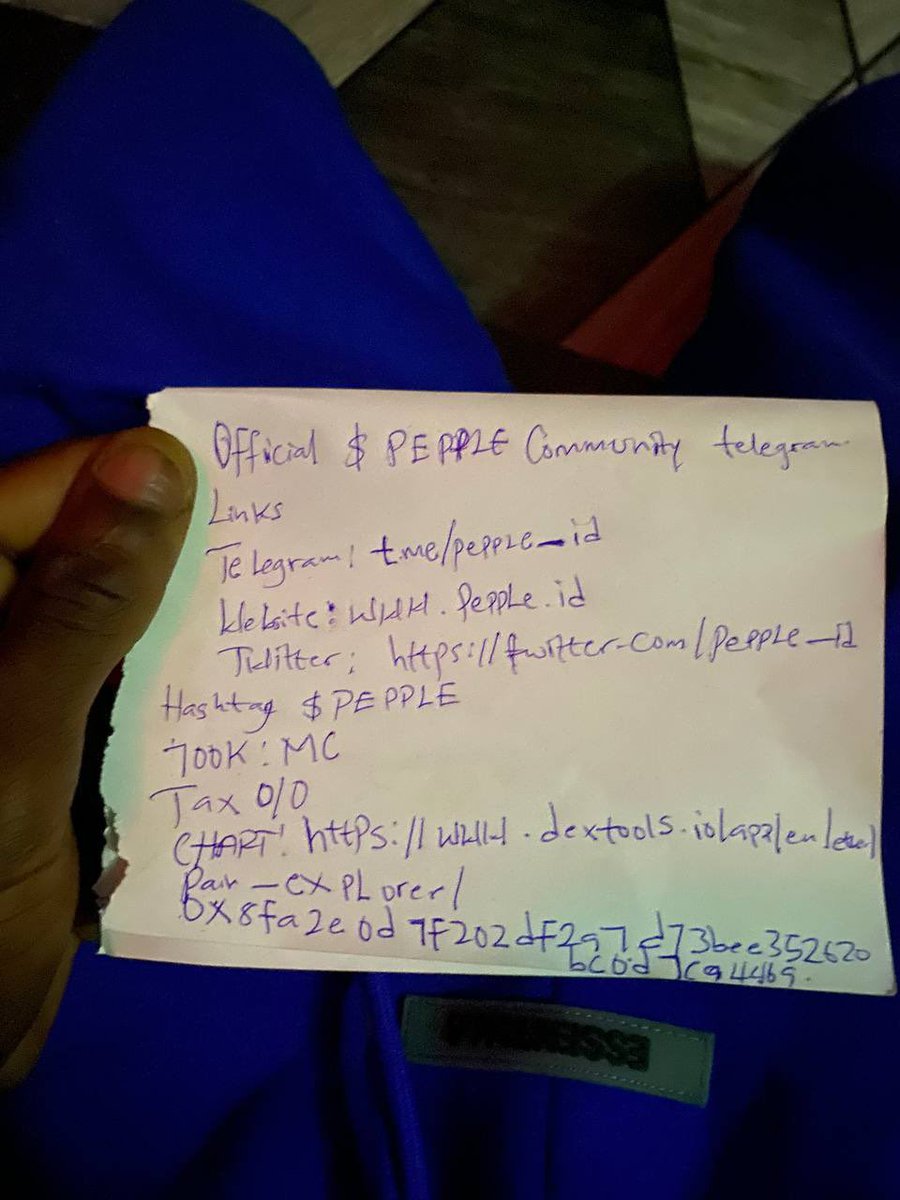 Official $ PEPPLE Community telegram
Links
Telegram: t.me/pepple_id
Website: WWW.Pepple.id
Twitter: https://twitter.com/Pepple_id
Hashtag $PEPPLE
700K: MC
Tax 0/0
CHART: https://WWW.dextools.io/app/en/ether/
Pair-explorer/
0x8fa2e0d7f202df297d73bee352620
bc0d7c94469.